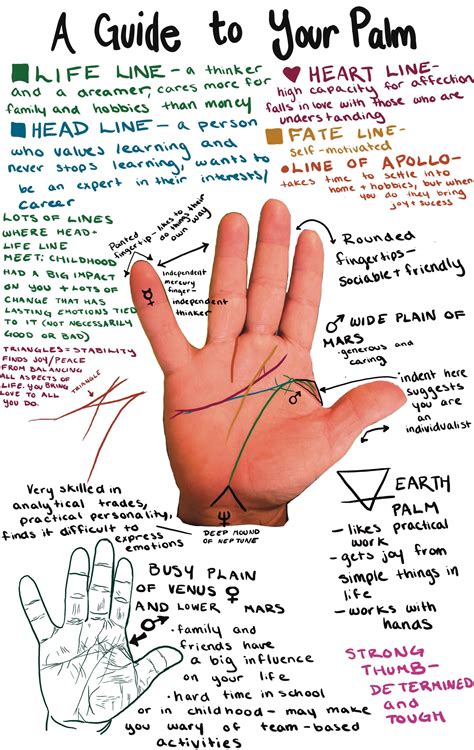 A Guide to Your Palm
LIFE LINE - a thinker
and a dreamer, cares more for
family and hobbies than money
HEAD LINE - a person
who values learning and
never stops learning, wants to
be an expert in their interests/
career
HEART LINE-
high capacity for affection
falls in love with those who are
understanding
FATE LINE-
self-motivated
LINE OF APOLLO-
takes time to settle into
home + hobbies, but when
you do they bring
joy + success
LOTS OF LINES
WHERE HEAD +
LIFE LINE
MEET: CHILDHOOD
HAD A BIG IMPACT
ON YOU + LOTS OF
CHANGE THAT HAS
LASTING EMOTIONS TIED
TO IT (NOT NECESSARILY
GOOD OR BAD)
TRIANGLES=STABILITY
FINDS JOY/PEACE
FROM BALANCING
ALL ASPECTS OF
LIFE. YOU BRING
LOVE TO ALL
YOU DO.
TRIANGLE
Pointed
fingertip - likes to
do things their
own way
independent
mercury
finger-
independent
thinker
☿
Rounded
fingertips-
sociable + friendly
♂ WIDE PLAIN OF
MARS
-generous and
caring
♂
indent here
suggests
you are
an
individualist
Very skilled in
analytical trades,
practical personality,
finds it difficult to
express
emotions
♆
DEEP MOUND
OF NEPTUNE
EARTH
PALM
- likes practical
work
- gets joy from
simple things in
life
- works with
hands
BUSY PLAIN
OF VENUS ♀
AND LOWER MARS
♂
• family and
friends have
a big influence
on your life
• hard time in school
or in childhood - may make
you wary of team-based
activities
STRONG
THUMB-
DETERMINED
and
TOUGH